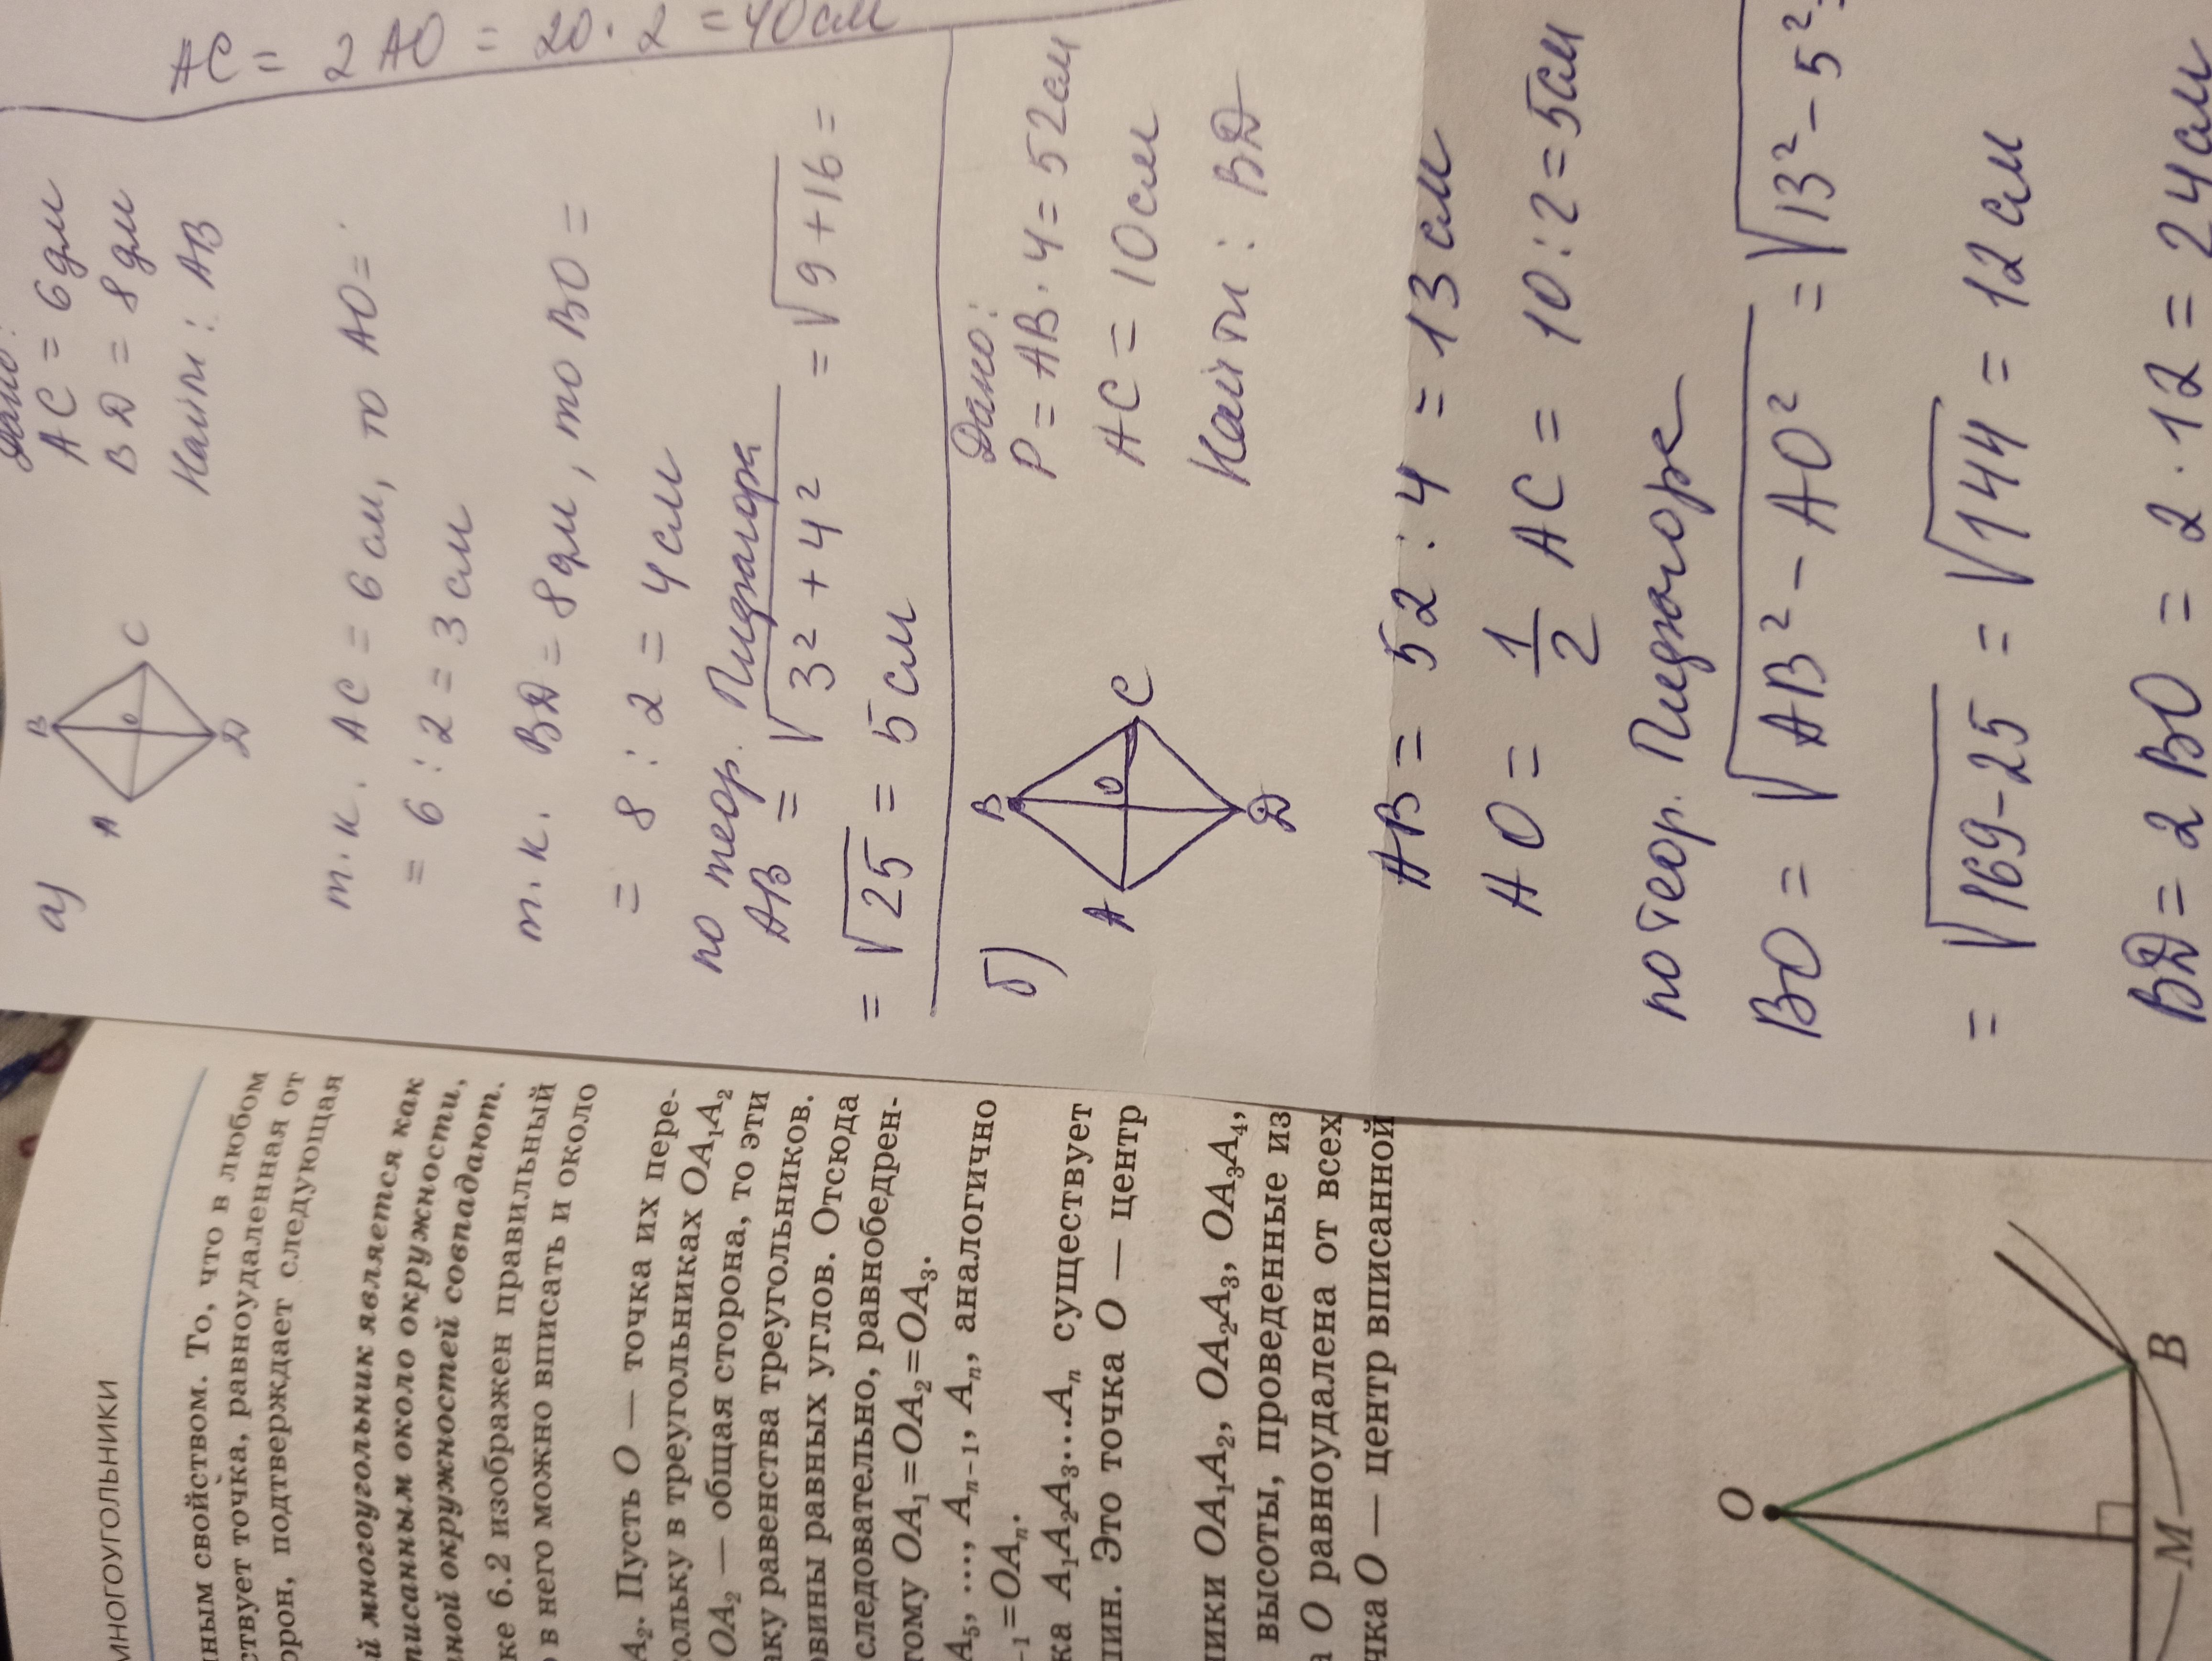 AC = 2 AO = 20 · 2 = 40 см
а)
B
A
O
C
Д
Дано:
AC = 6 дм
BД = 8 дм
Найти : AB
т.к. AC = 6 см, то AO =
= 6 : 2 = 3 см
т.к. BД = 8 дм, то BO =
= 8 : 2 = 4 см
по теор. Пифагора
AB = √3² + 4² = √9 + 16 =
= √25 = 5 см
б)
B
A
O
C
Д
Дано:
P = AB · 4 = 52 см
AC = 10 см
Найти : BД
AB = 52 : 4 = 13 см
AO = 1/2 AC = 10 : 2 = 5 см
по теор. Пифагора
BO = √AB² − AO² = √13² − 5² =
= √169-25 = √144 = 12 см
BД = 2 BO = 2 · 12 = 24 см
МНОГОУГОЛЬНИКИ
ным свойством. То, что в любом
ствует точка, равноудаленная от
орон, подтверждает следующая
й многоугольник является как
писанным около окружности,
ной окружностей совпадают.
ке 6.2 изображен правильный
в него можно вписать и около
A₂. Пусть O — точка их пере-
ольку в треугольниках OA₁A₂
OA₂ — общая сторона, то эти
аку равенства треугольников.
овины равных углов. Отсюда
следовательно, равнобедрен-
тому OA₁=OA₂=OA₃.
A₅, ..., Aₙ₋₁, Aₙ, аналогично
₋₁=OAₙ.
ка A₁A₂A₃...Aₙ существует
шин. Это точка O — центр
ники OA₁A₂, OA₂A₃, OA₃A₄,
высоты, проведенные из
а O равноудалена от всех
чка O — центр вписанной
O
M
B